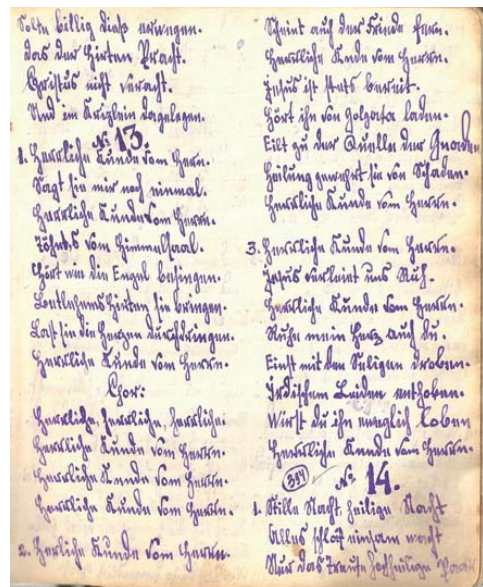 Solte billig dieß erwegen.
das der Hirten Pracht.
Christus nicht veracht.
Und im Kriplein dagelegen.
№ 13.
1. Herrliche Kunde vom Herrn.
Sagt sie mir noch einmal.
Herrliche Kunde vom Herrn.
Töhnt,s vom Himmelsaal.
Hört was die Engel besingen.
Bethlehems Hirten sie bringen.
Last sie die Herzen durchdringen.
Herrliche Kunde vom Herrn.
Chor:
Herrliche, herrliche, herrliche.
Herrliche Kunde vom Herrn.
Herrliche Kunde vom Herrn.
Herrliche Kunde vom Herrn.
2. Herliche Kunde vom Herrn.
Scheint auch der Friede fern.
Herrliche Kunde vom Herrn.
Jesus ist stets bereit.
Hört ihn von Golgata laden.
Eilt zu der Quelle der Gnaden
Heilung gewehrt sie von Schaden.
Herrliche Kunde vom Herrn.
3. Herrliche Kunde vom Herrn.
Jesus verleint uns Ruh.
Herrliche Kunde vom Herrn.
Ruhe mein Herz auch du.
Einst mit den Seligen droben.
Irdischem Leiden enthoben.
Wirst du ihn ewiglich loben
Herrliche Kunde vom Herrn.
317 № 14.
1. Stille Nacht, heilige Nacht
Alles schläft einsam wacht
Nur das traute hochheilige Paar